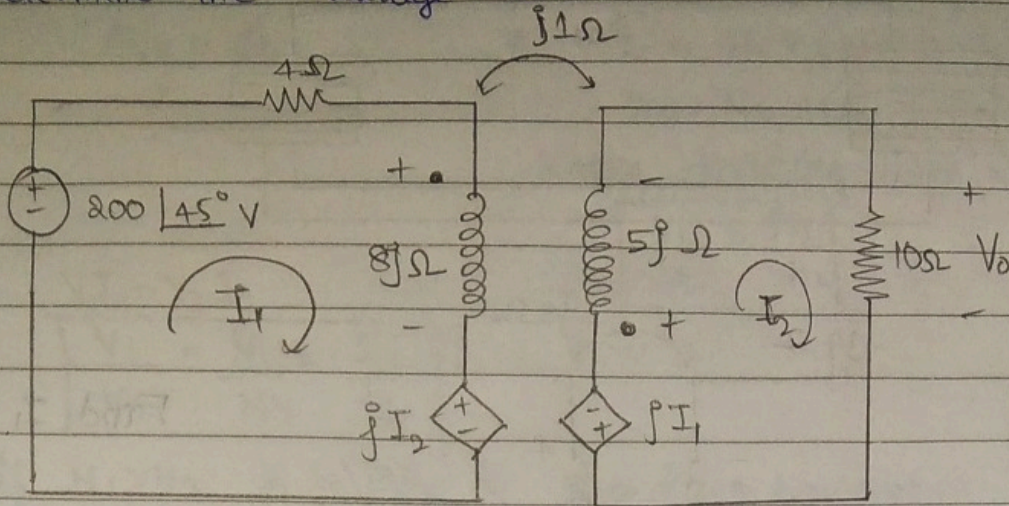 j1Ω
4Ω
200 |45° V
+ -
+ •
-
8jΩ
I₁
-
5jΩ
• +
I₂
10Ω
+
V₀
-
jI₂
+ -
- +
jI₁